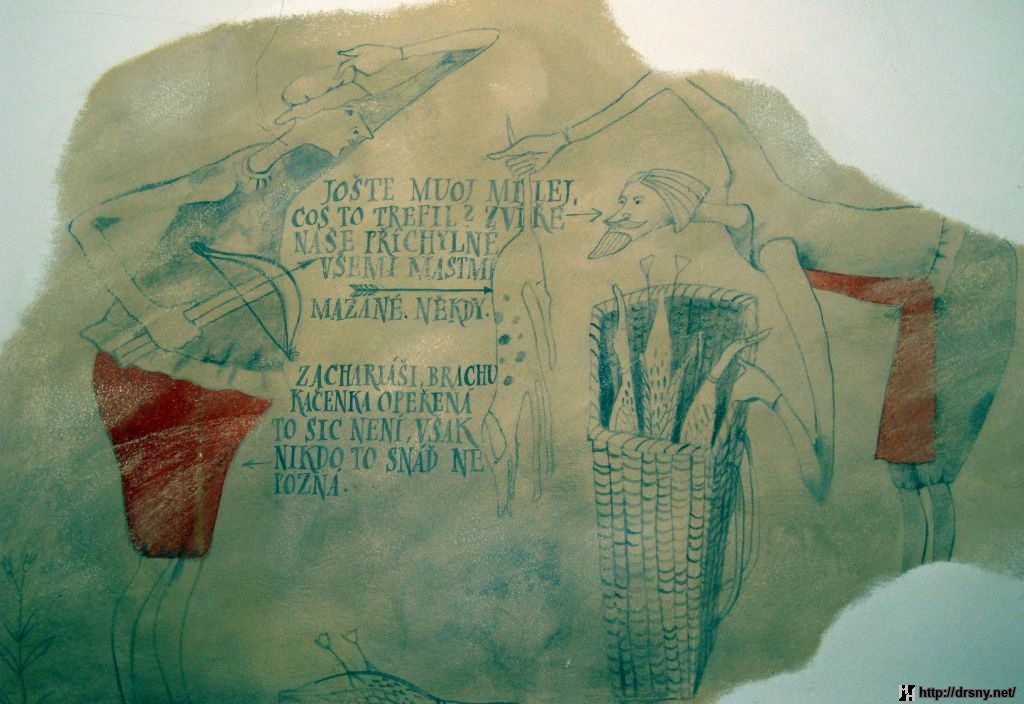 JOŠTE MUOJ MILEJ,
COS TO TREFIL? ZVÍŘE
NAŠE PŘÍCHYLNÉ
VŠEMI MASTMI
MAZANÉ. NĚKDY.
ZACHARIÁŠI, BRACHU
KAČENKA OPEŘENÁ
TO SIC NENÍ, VŠAK
NIKDO TO SNÁĎ NE
POZNÁ.
http://drsny.net/